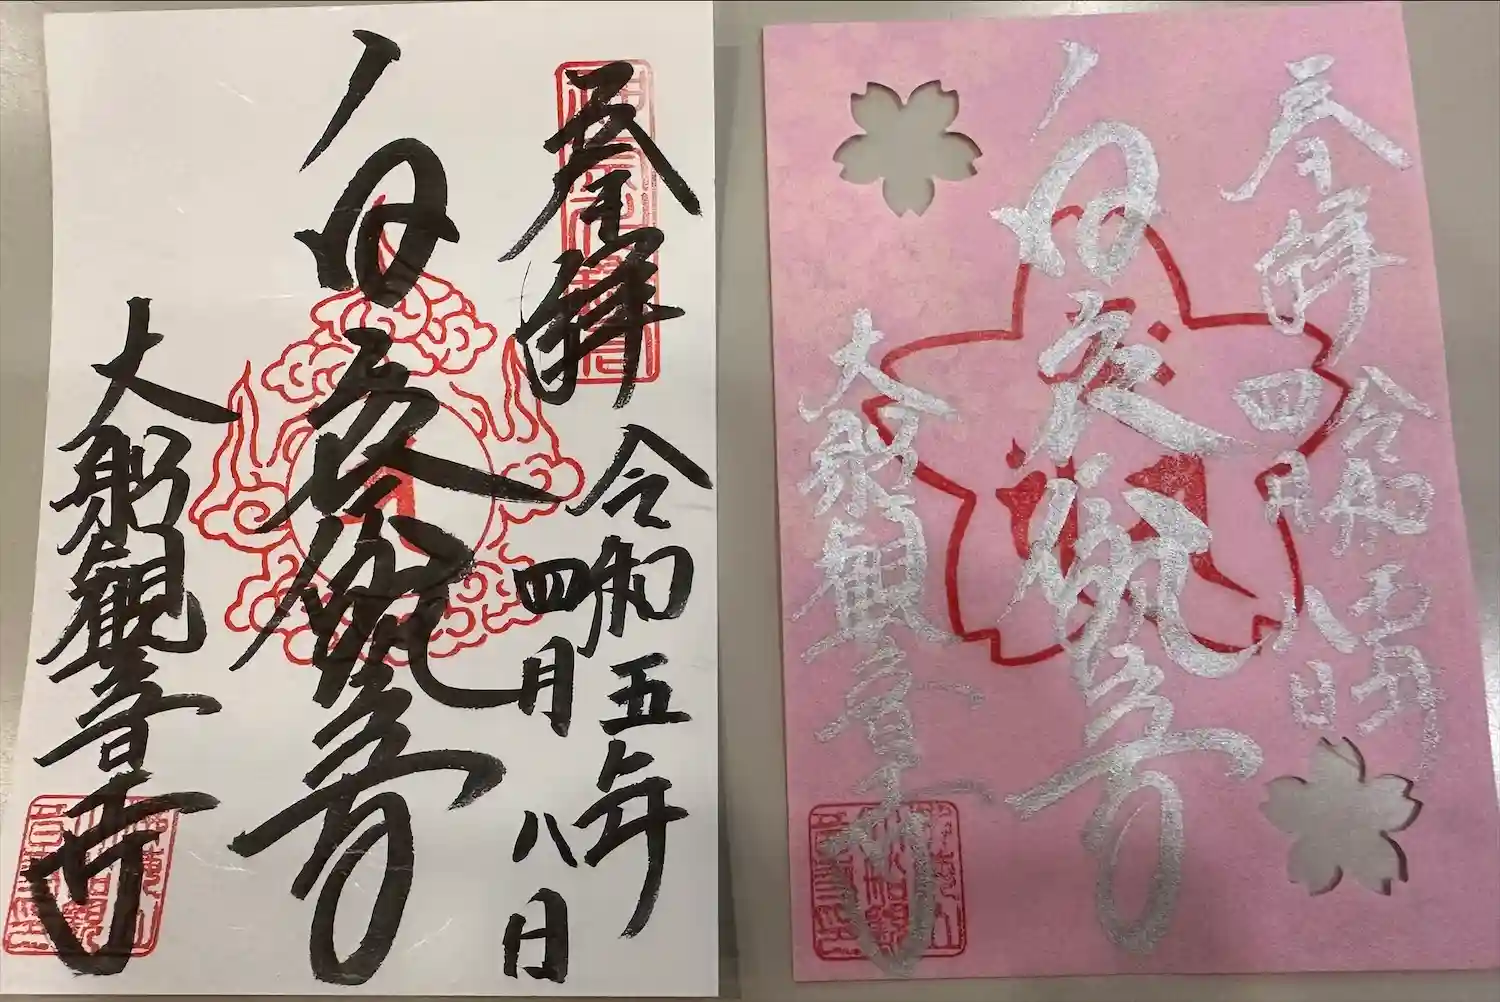 奉拝
令和五年
四月八日
白衣観音
大船観音寺
奉拝
令和五年
四月八日
白衣観音
大船観音寺